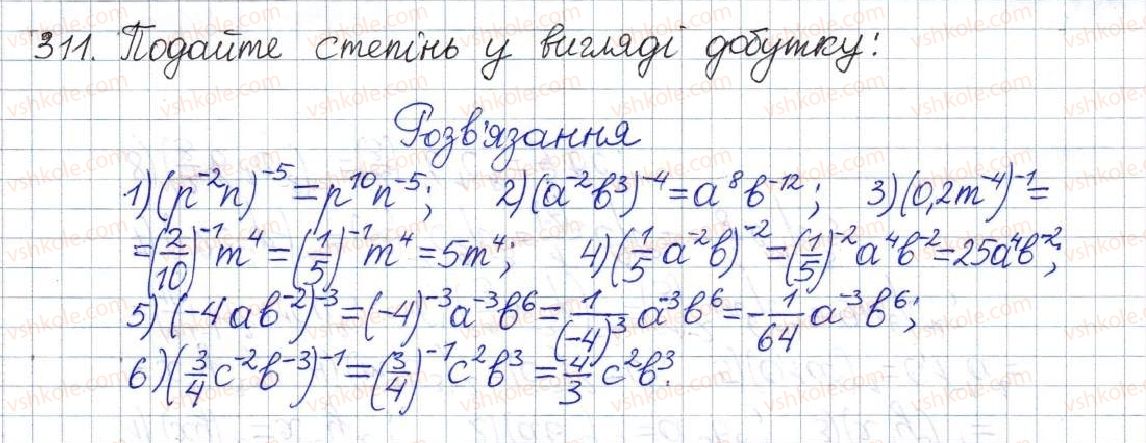 311. Подайте степінь у вигляді добутку:
Розв'язання
1) (p⁻²n)⁻⁵ = p¹⁰n⁻⁵; 2) (a⁻²b³)⁻⁴ = a⁸b⁻¹²; 3) (0,2m⁻⁴)⁻¹ =
= (2/10)⁻¹ m⁴ = (1/5)⁻¹ m⁴ = 5m⁴; 4) (1/5 a⁻²b)⁻² = (1/5)⁻² a⁴b⁻² = 25a⁴b⁻²;
5) (-4ab⁻²)⁻³ = (-4)⁻³a⁻³b⁶ = 1/(-4)³ a⁻³b⁶ = -1/64 a⁻³b⁶;
6) (3/4 c⁻²b⁻³)⁻¹ = (3/4)⁻¹ c²b³ = 4/3 c²b³.